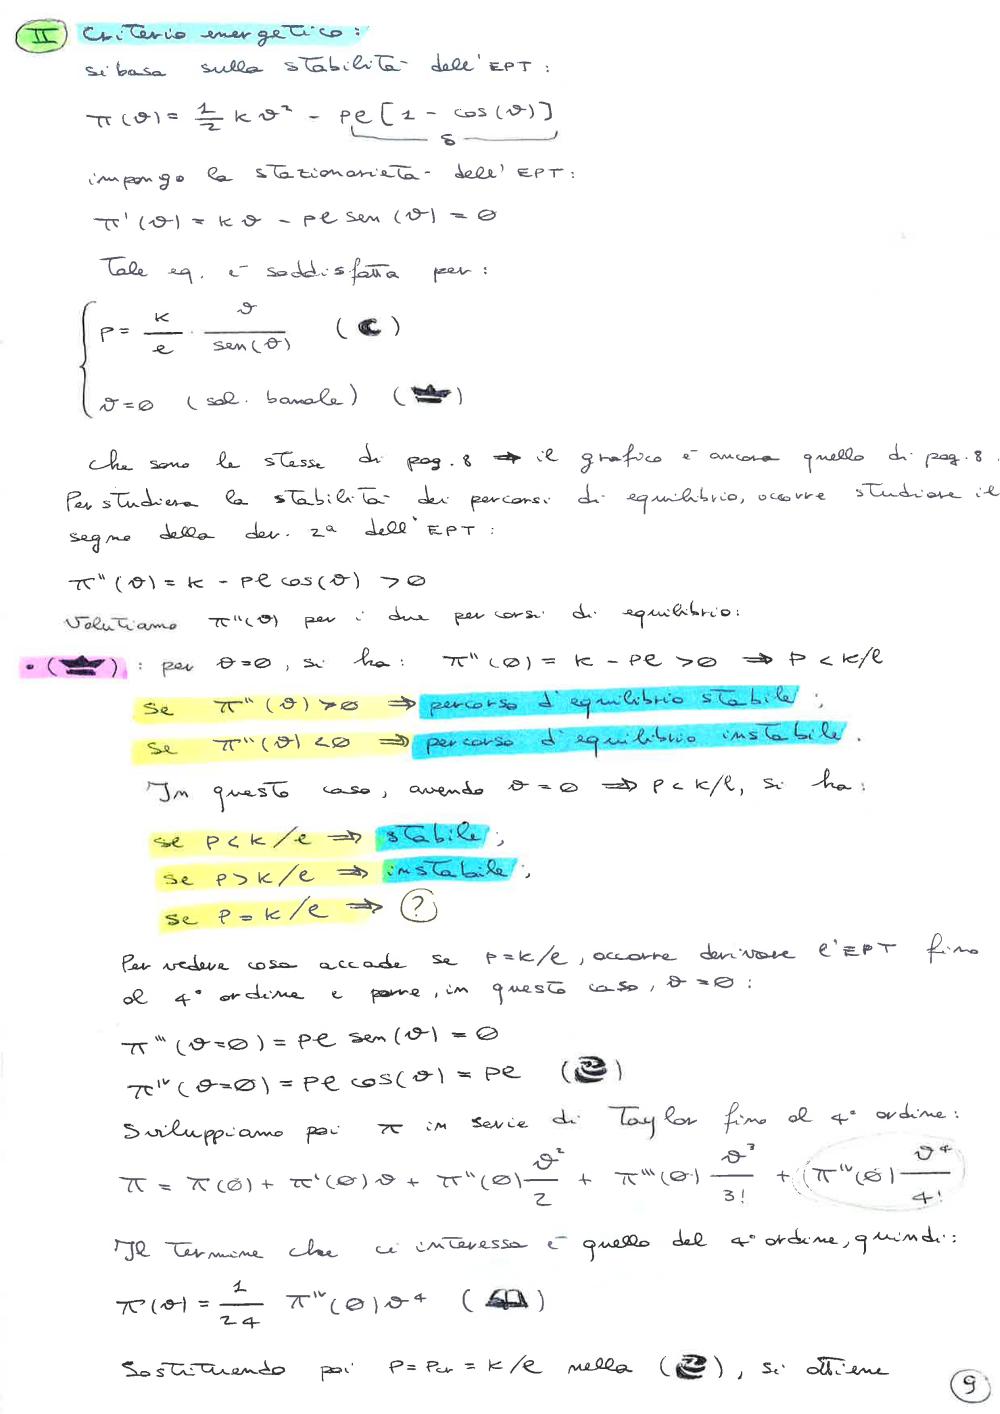 II Criterio energetico:
si basa sulla stabilità dell'EPT:
π(ϑ) = 1/2 k ϑ² - Pl [1 - cos(ϑ)]
δ
impongo la stazionarietà dell'EPT:
π'(ϑ) = k ϑ - Pl sen(ϑ) = 0
Tale eq. è soddisfatta per:
P = k/l · ϑ/sen(ϑ) (☾)
ϑ=0 (sol. banale) (♛)
che sono le stesse di pag. 8 → il grafico è ancora quello di pag. 8.
Per studiera la stabilità dei percorsi di equilibrio, occorre studiare il
segno della der. 2ª dell'EPT:
π''(ϑ) = k - Pl cos(ϑ) > 0
Valutiamo π''(ϑ) per i due percorsi di equilibrio:
• (♛): per ϑ=0, si ha: π''(0) = k - Pl > 0 ⇒ P < k/l
se π''(ϑ) > 0 ⇒ percorso d'equilibrio stabile;
se π''(ϑ) < 0 ⇒ percorso d'equilibrio instabile.
In questo caso, avendo ϑ = 0 ⇒ P < k/l, si ha:
se P < k/l ⇒ stabile;
se P > k/l ⇒ instabile;
se P = k/l ⇒ ?
Per vedere cosa accade se P = k/l, occorre derivare l'EPT fino
al 4° ordine e porre, in questo caso, ϑ = 0:
π'''(ϑ=0) = Pl sen(ϑ) = 0
π^IV(ϑ=0) = Pl cos(ϑ) = Pl
Sviluppiamo poi π in serie di Taylor fino al 4° ordine:
π = π(0) + π'(0)ϑ + π''(0) ϑ²/2 + π'''(0) ϑ³/3! + (π^IV(0) ϑ⁴/4!)
Il termine che ci interessa è quello del 4° ordine, quindi:
π(ϑ) = 1/24 π^IV(0) ϑ⁴ (📖)
Sostituendo poi P = Pcr = k/l nella ( ), si ottiene
9